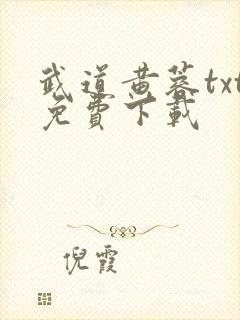 武道黄蓉txt
免費下載
倪霞